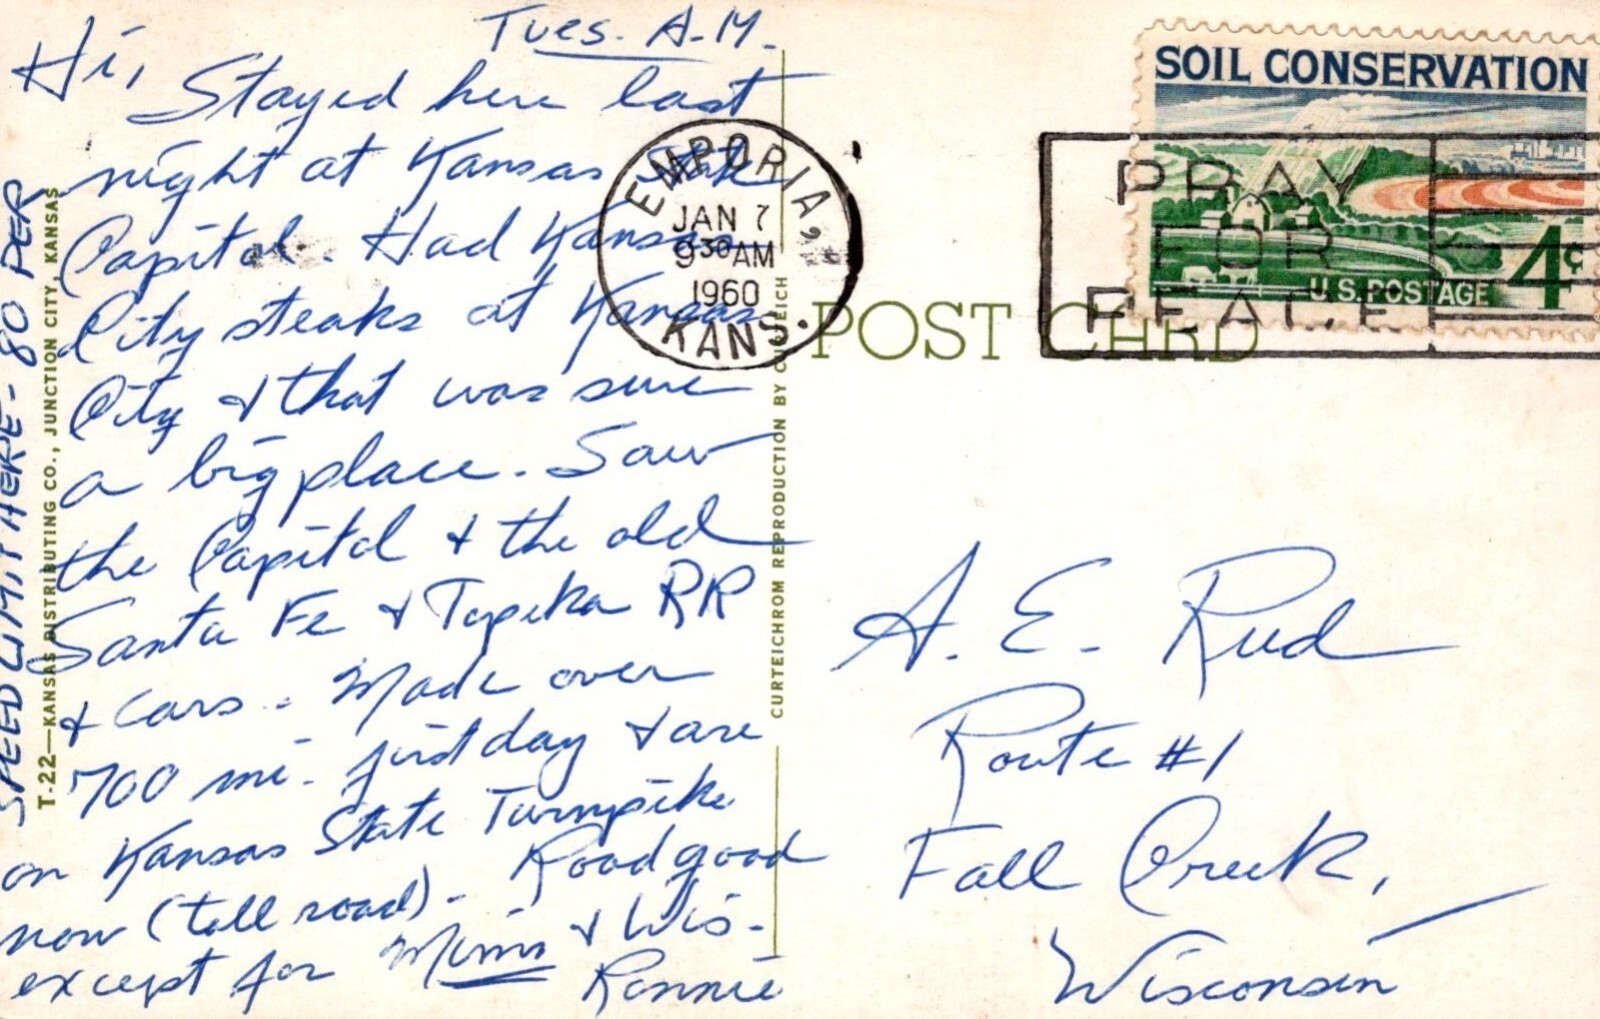 Tues. A.M.
Hi,
Stayed here last
night at Kansas State
Capitol. Had Kansas
City steaks at Kansas
City & that was sure
a big place. Saw
the Capitol & the old
Santa Fe & Topeka RR
& cars. Made over
700 mi. first day & are
on Kansas State Turnpike
now (toll road). Road good
except for Minn & Wis.
Ronnie
SPEED LIMIT HERE - 80 PER
T-22—KANSAS DISTRIBUTING CO., JUNCTION CITY, KANSAS
CURTEICHROM REPRODUCTION BY CURTEICH
POST CARD
EMPORIA,
JAN 7
9 30 AM
1960
KANS.
SOIL CONSERVATION
4¢
U.S. POSTAGE
PRAY
FOR
PEACE
A. E. Rud
Route #1
Fall Creek,
Wisconsin